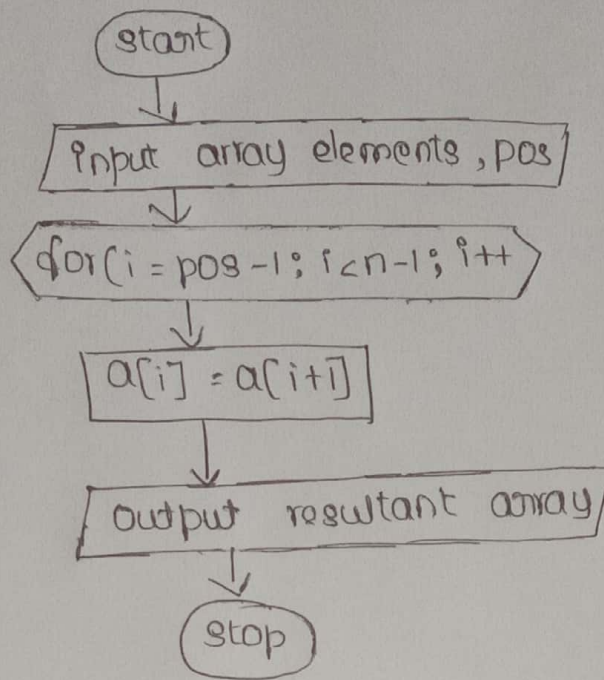 start
input array elements, pos
for(i = pos-1; i<n-1; i++
a[i] = a[i+1]
output resultant array
stop